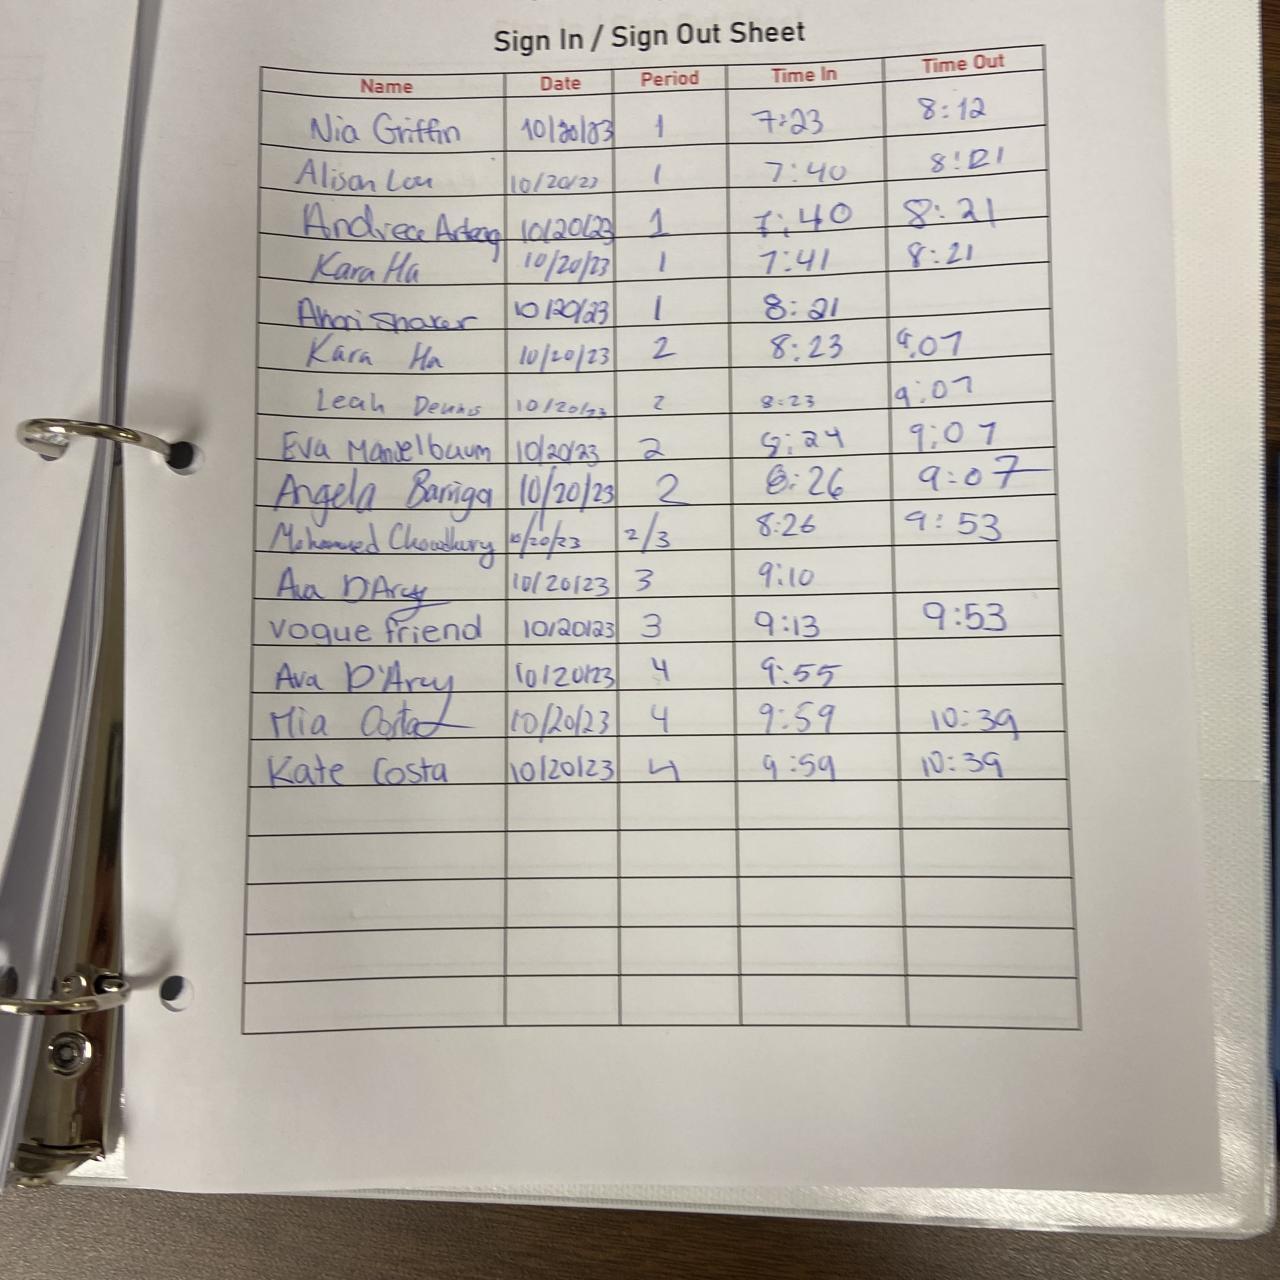 Sign In / Sign Out Sheet
Name Date Period Time In Time Out
Nia Griffin 10/20/23 1 7:23 8:12
Alison Lou 10/20/23 1 7:40 8:21
Andreea 10/20/23 1 7:40 8:21
Kara Ha 10/20/23 1 7:41 8:21
10/20/23 1 8:21
Kara Ha 10/20/23 2 8:23 9:07
Leah Dennis 10/20/23 2 8:23 9:07
Eva Mandelbaum 10/20/23 2 8:24 9:07
Angela Barriga 10/20/23 2 8:26 9:07
Mohammed Chowdhury 10/20/23 2/3 8:26 9:53
Ava D'Arcy 10/20/23 3 9:10
Vogue friend 10/20/23 3 9:13 9:53
Ava D'Arcy 10/20/23 4 9:55
Mia Costa 10/20/23 4 9:59 10:39
Kate Costa 10/20/23 4 9:59 10:39